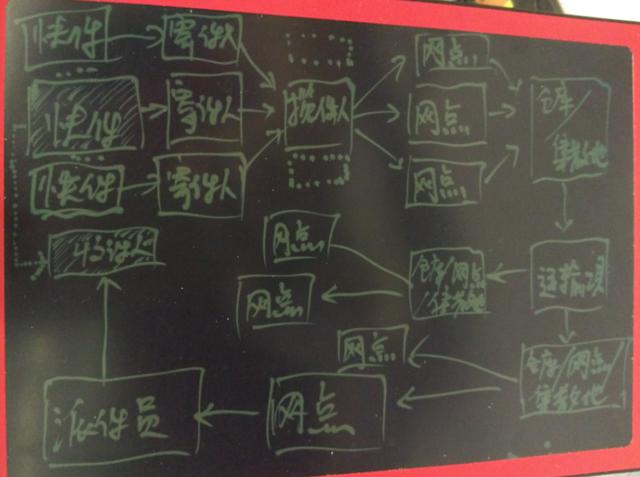 快件
寄件人
网点
快件
寄件人
揽件人
网点
仓库/
集散地
快件
寄件人
网点
收件人
网点
网点
仓库/网点
/集散地
运输
网点
仓库/网点/
集散地
派件员
网点